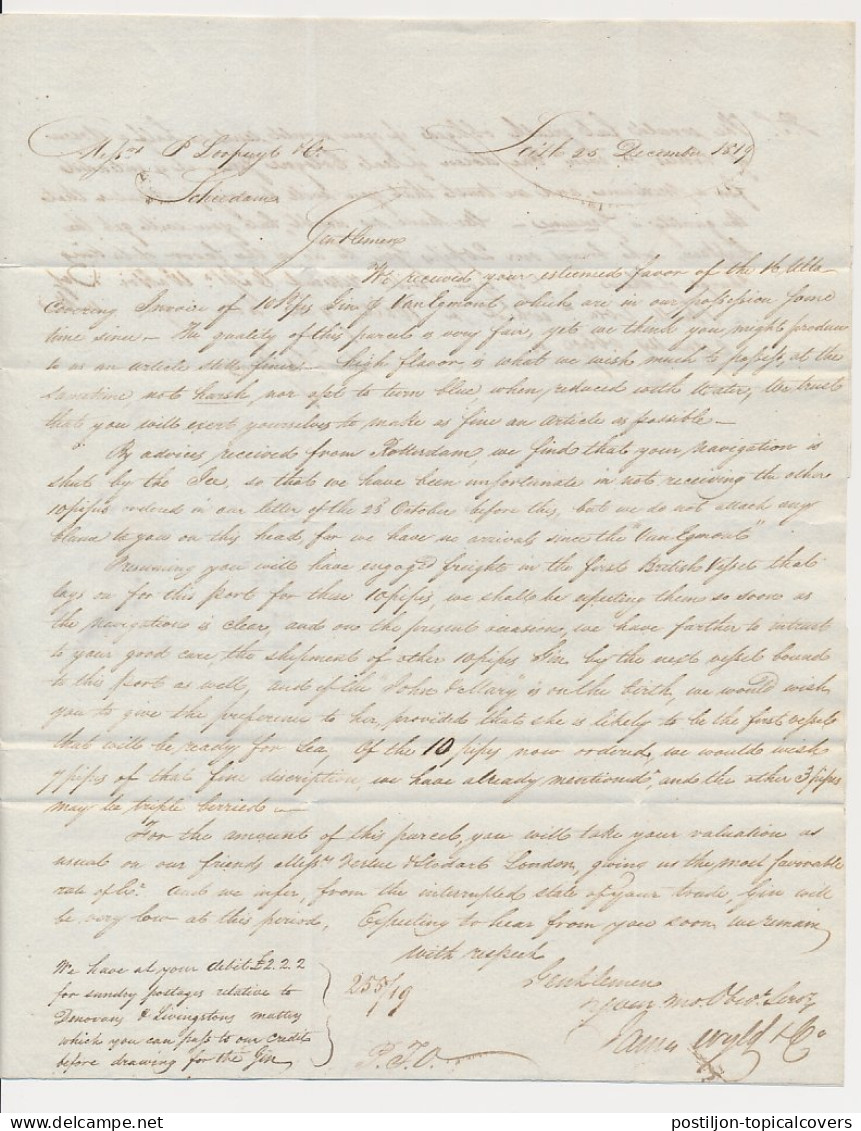 Messrs P Loopuyt & Co. Leith 25 December 1819
Schiedam
Gentlemen
We received your esteemed favor of the 16 Ulto
covering Invoice of 10 Pps Gin P Van Egmont, which are in our possession some
time since — The quality of this parcel is very fair, yet we think you might produce
to us an article still finer — high flavor is what we wish much to possess, at the
sametime not harsh, nor apt to turn blue, when reduced with Water, We trust
that you will exert yourselves to make as fine an article as possible —
By advices received from Rotterdam, we find that your navigation is
shut by the Ice, so that we have been unfortunate in not receiving the other
10 pipes ordered in our letter of the 23d October before this, but we do not attach any
blame to you on this head, for we have no arrivals since the "Van Egmont"
Presuming you will have engagd freight in the first British Vessel that
lays on for this port for these 10 pipes, we shall be expecting them so soon as
the navigation is clear, and on the present occasion, we have farther to intrust
to your good care, the shipment of other 10 pipes Gin by the next vessel bound
to this port as well, and if the "John & Mary" is on the birth, we would wish
you to give the preference to her, provided that she is likely to be the first vessel
that will be ready for Sea, Of the 10 pipes now ordered, we would wish
7 pipes of that fine discription, we have already mentioned, and the other 3 pipes
may be triple berried —
For the amount of this parcel, you will take your valuation as
usual on our friends Messrs & Stodart London, giving us the most favorable
rate of and we infer, from the interrupted state of your trade, Gin will
be very low at this period, Expecting to hear from you soon we remain
with respect
Gentlemen
your mo. Obedt Servt
James Wyld & Co
We have at your debit £2.2.2
for sundry postages relative to
Donovans & Livingstons matters
which you can pass to our credit
before drawing for the Gin
255/19
P.T.O.
postiljon-topicalcovers